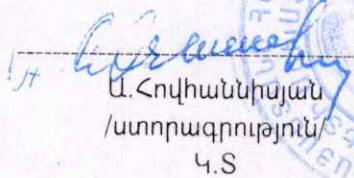 Ա.Հովհաննիսյան
/ստորագրություն/
Կ.Տ